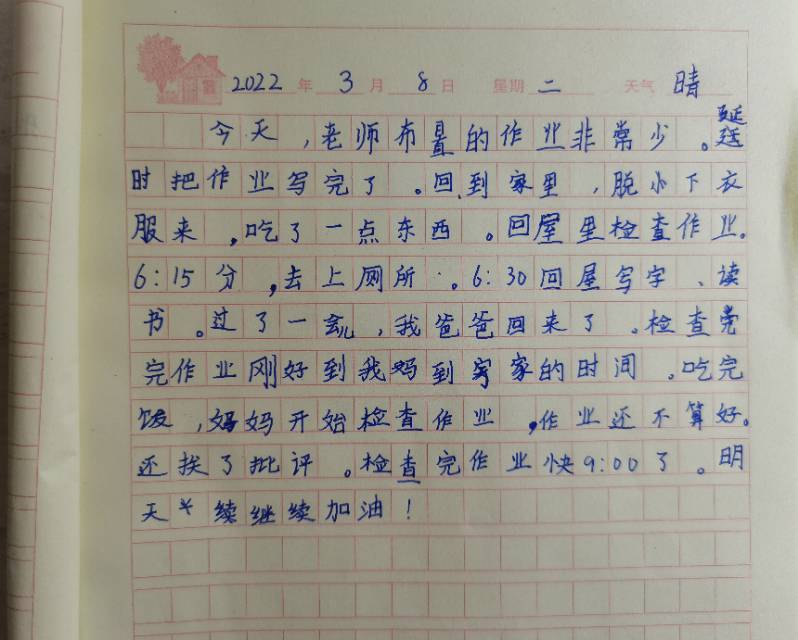 2022 年 3 月 8 日 星期 二 天气 晴
今天,老师布置的作业非常少。延
时把作业写完了。回到家里,脱下衣
服来,吃了一点东西。回屋里检查作业。
6:15分,去上厕所。6:30回屋写字、读
书。过了一会儿,我爸爸回来了。检查
完作业刚好到我妈到家的时间。吃完
饭,妈妈开始检查作业,作业还不算好。
还挨了批评。检查完作业快9:00了。明
天继续加油!